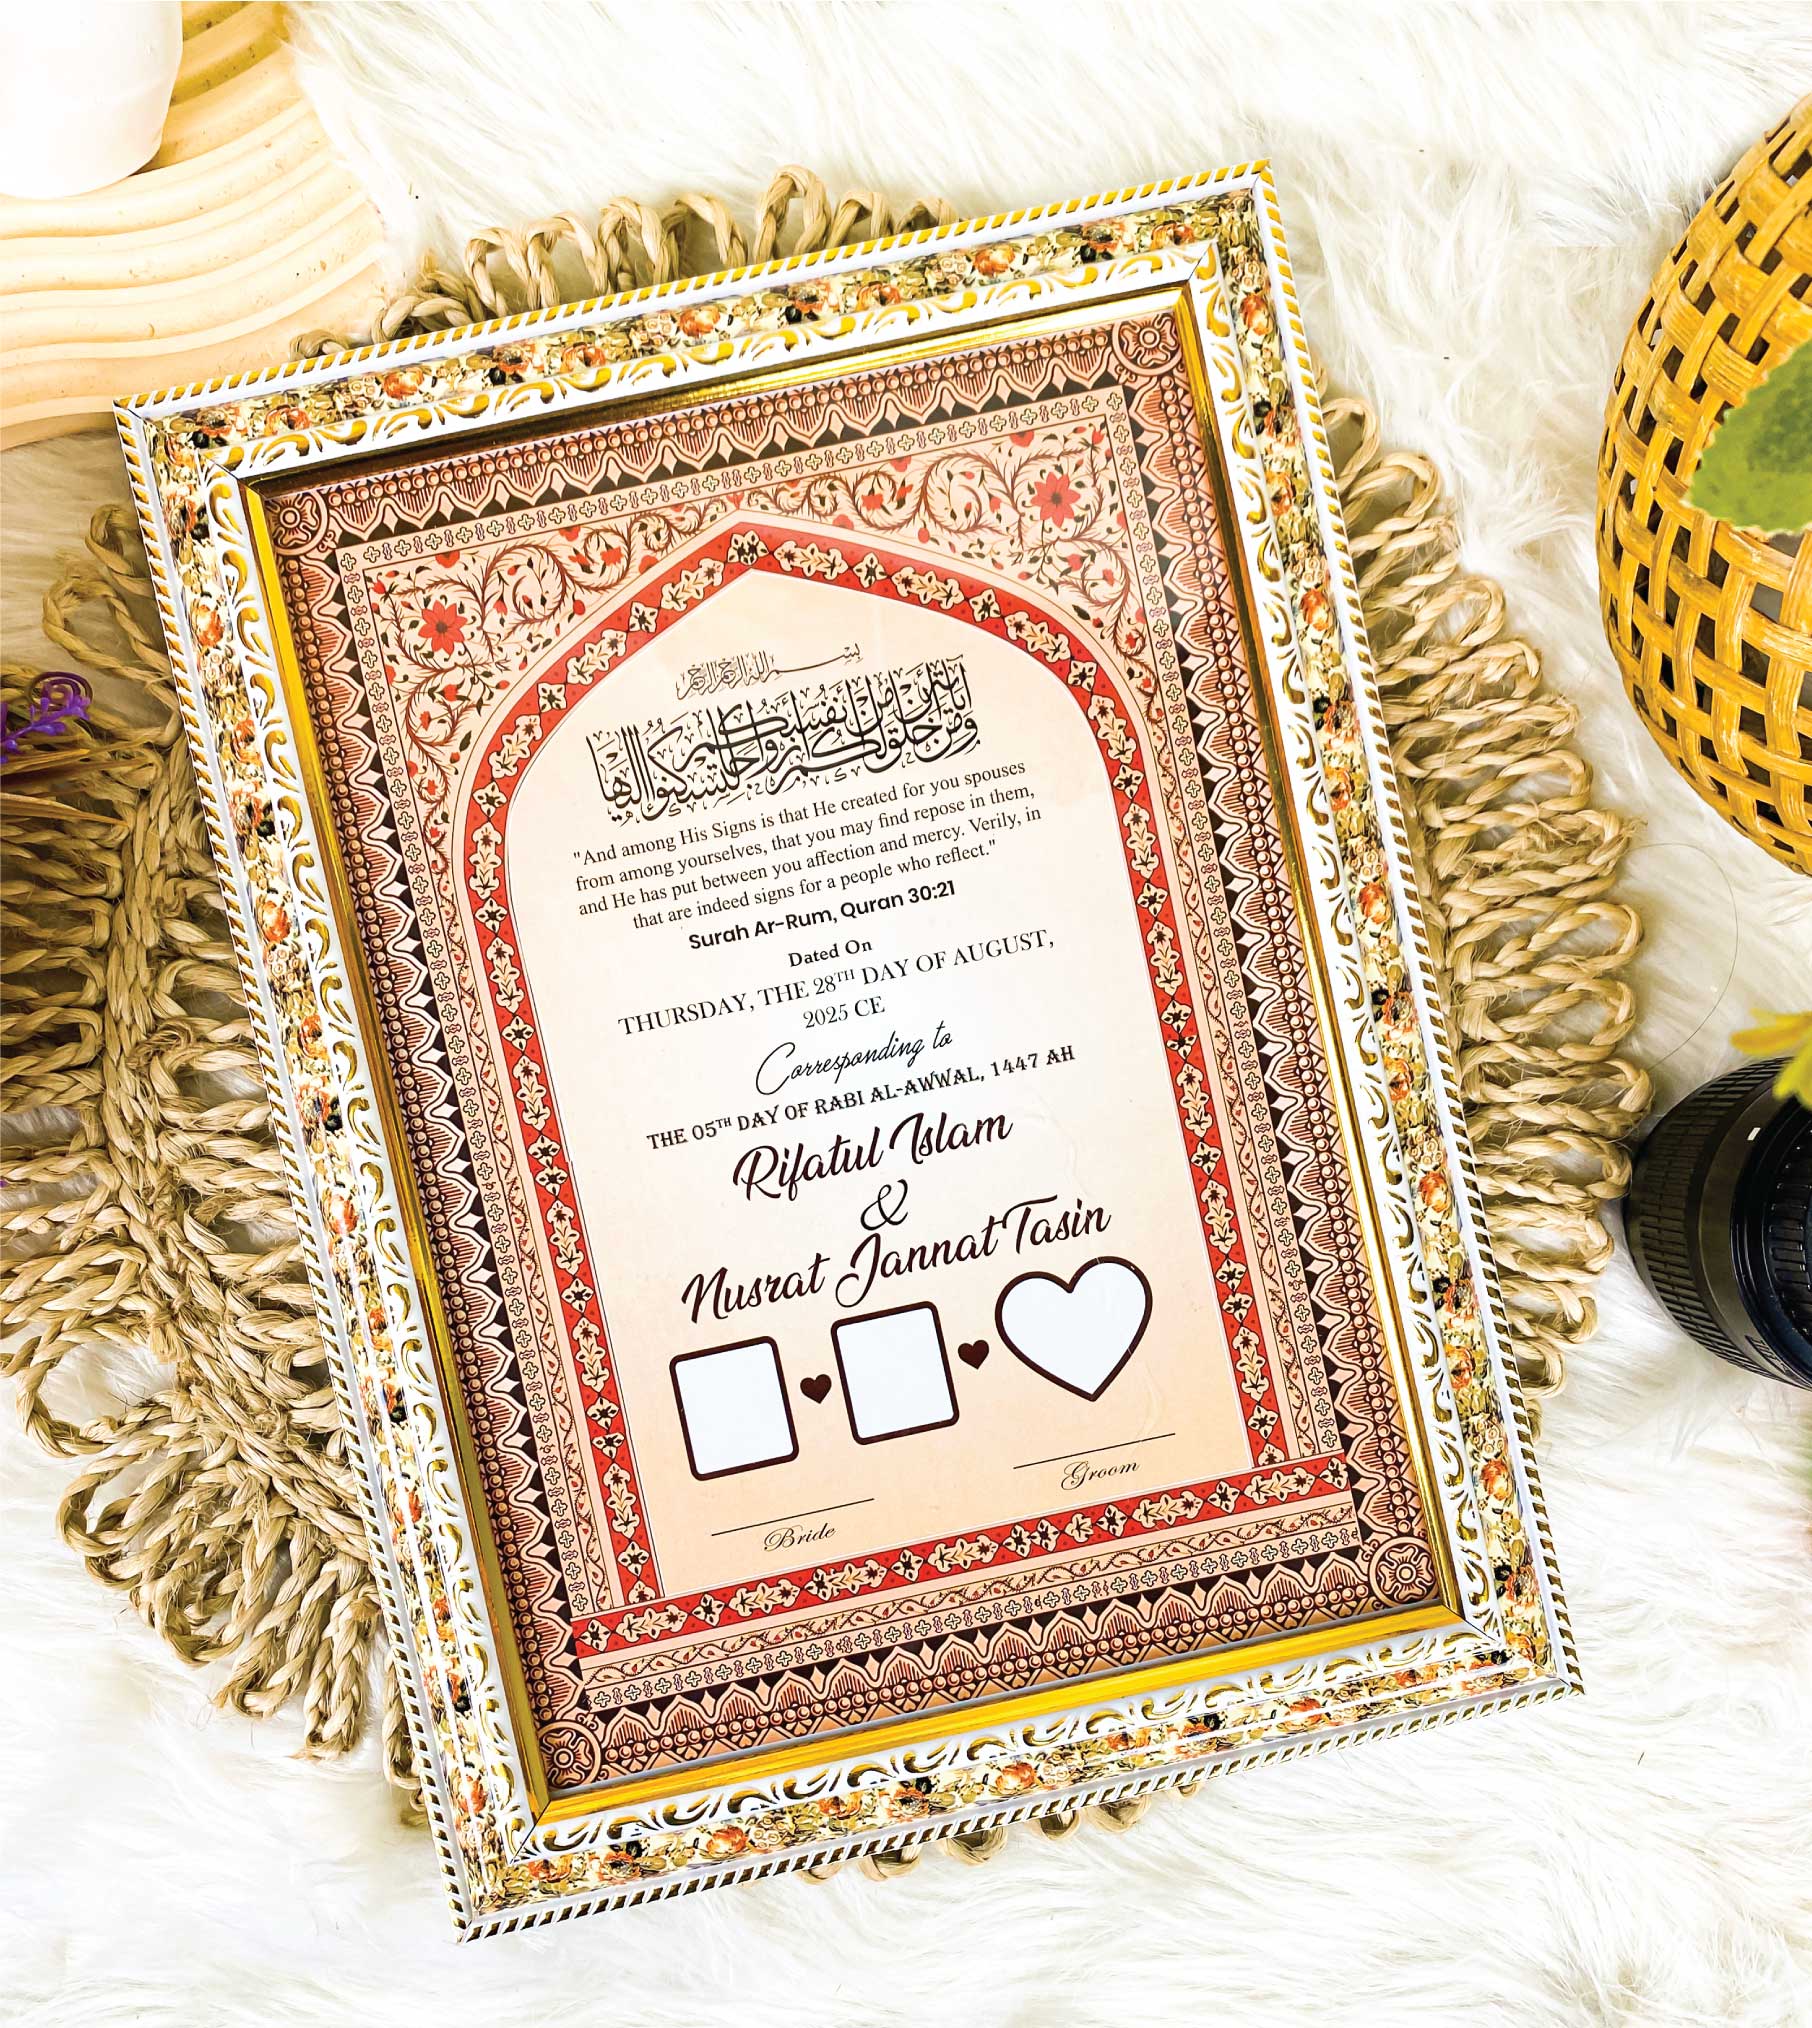 بسم الله الرحمن الرحيم
ومن آياته أن خلق لكم من أنفسكم أزواجا لتسكنوا إليها
"And among His Signs is that He created for you spouses
from among yourselves, that you may find repose in them,
and He has put between you affection and mercy. Verily, in
that are indeed signs for a people who reflect."
Surah Ar-Rum, Quran 30:21
Dated On
THURSDAY, THE 28TH DAY OF AUGUST,
2025 CE
Corresponding to
THE 05TH DAY OF RABI AL-AWWAL, 1447 AH
Rifatul Islam
&
Nusrat Jannat Tasin
Bride
Groom